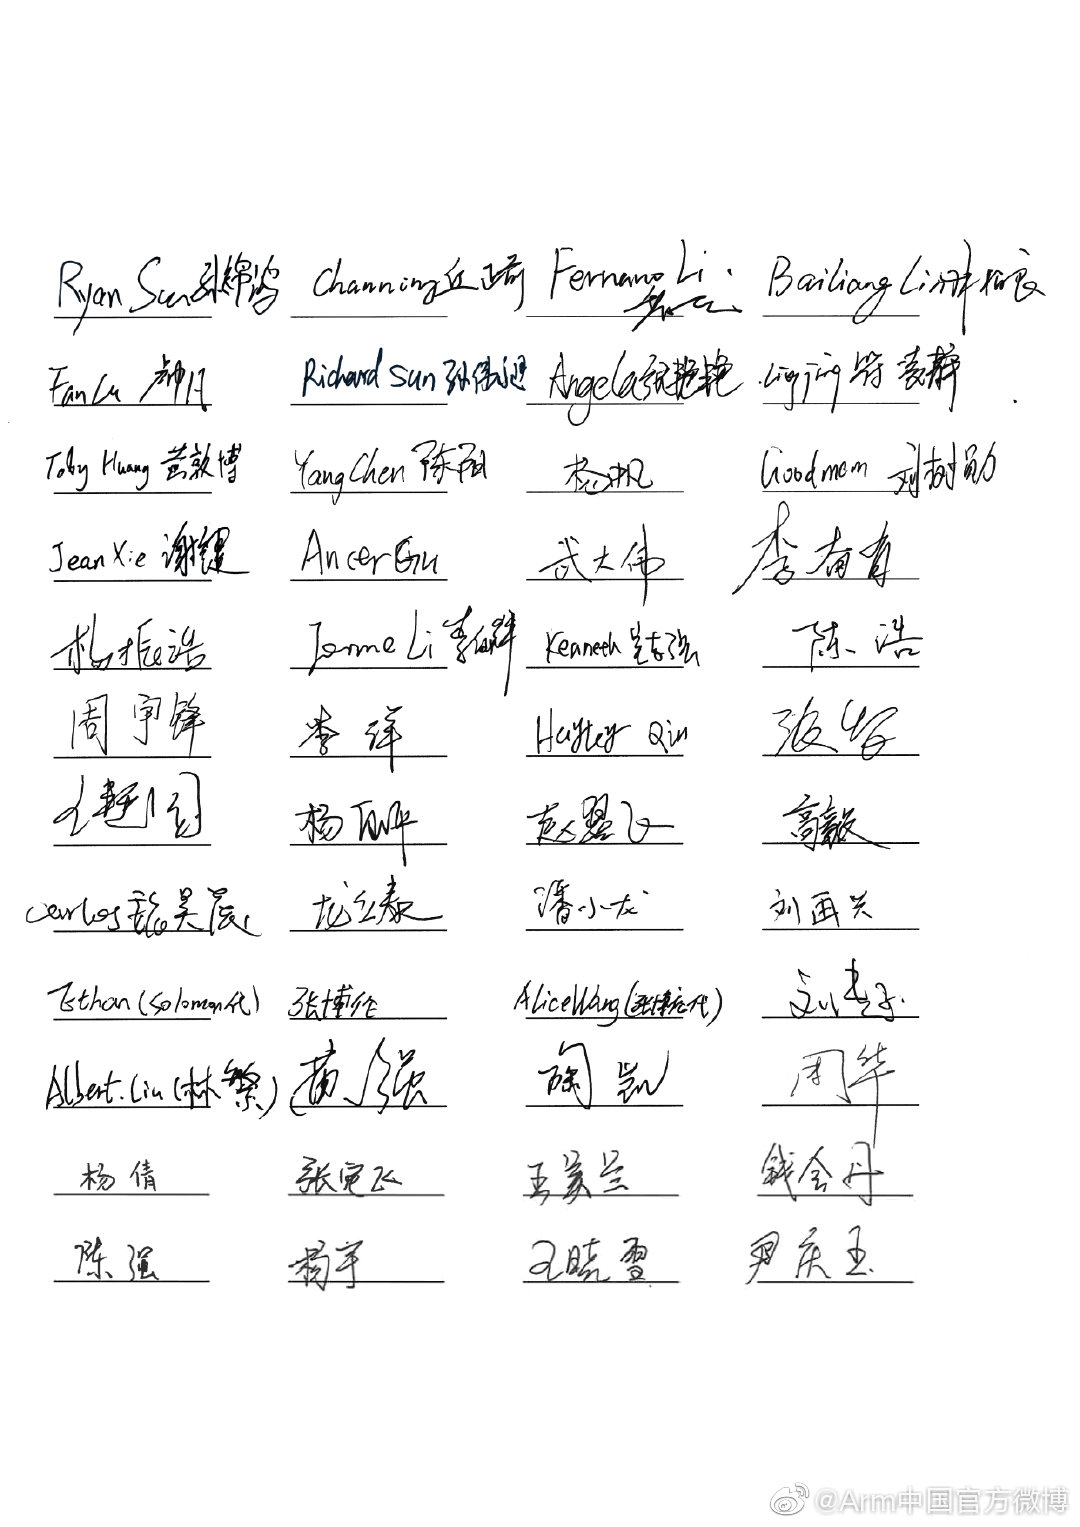 Ryan Sun 孙锦鸿 Channing 丘 Fernano Li. Bailiang Li
Fan Lu Richard Sun 孙伟 Angela 张艳艳 Lingjing 符菱静
Toby Huang 黄敦博 Yang Chen 陈阳 杨帆 Goodmem 刘树勋
Jean Xie 谢健 Ancer Gu 武大伟 李奋育
杨振浩 Li 李 Kenneth 陈浩
周宇锋 李洋 Hayley Qin 张
王 杨 赵翌飞 高毅
Carlos 魏昊辰 龙立泰 潘小龙 刘再兴
Ethan (Solomon代) 张博伦 Alice Wang (张博伦代) 刘
Albert. Liu (林繁) 黄强 陶凯 周华
杨倩 张宾飞 王美兰 钱会丹
陈强 杨宇 王晓雪 尹庆玉
@Arm中国官方微博